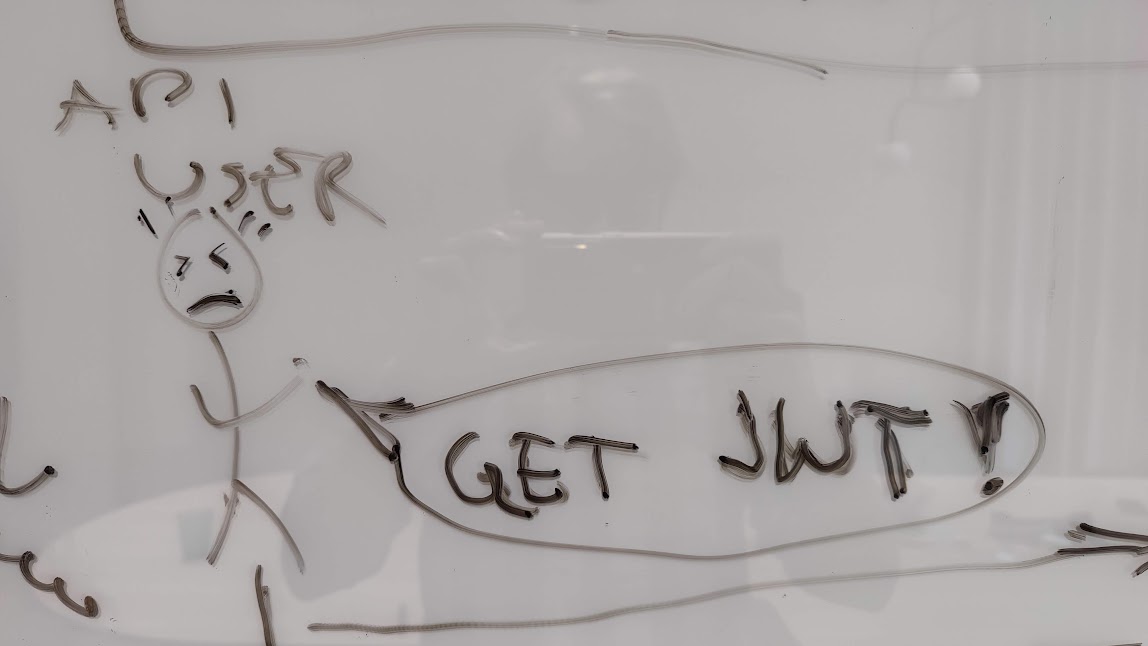 API
USER
GET JWT!